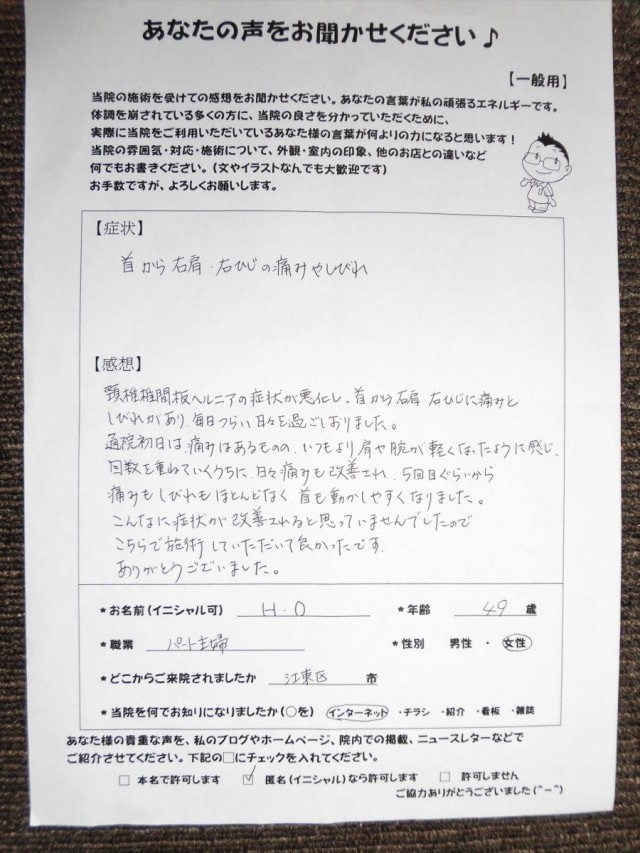 あなたの声をお聞かせください♪
【一般用】
当院の施術を受けての感想をお聞かせください。あなたの言葉が私の頑張るエネルギーです。
体調を崩されている多くの方に、当院の良さを分かっていただくために、
実際に当院をご利用いただいているあなた様の言葉が何よりの力になると思います！
当院の雰囲気・対応・施術について、外観・室内の印象、他のお店との違いなど
何でもお書きください。（文やイラストなんでも大歓迎です）
お手数ですが、よろしくお願いします。
【症状】
首から右肩・右ひじの痛みやしびれ
【感想】
頸椎椎間板ヘルニアの症状が悪化し、首から右肩・右ひじに痛みと
しびれがあり、毎日つらい日々を過ごしおりました。
通院初日は、痛みはあるものの、いつもより肩や腕が軽くなったように感じ、
回数を重ねていくうちに、日々痛みも改善され、5回目ぐらいから
痛みもしびれもほとんどなく首も動かしやすくなりました。
こんなに症状が改善されると思っていませんでしたので
こちらで施術していただいて良かったです。
ありがとうございました。
*お名前（イニシャル可） H.O *年齢 49 歳
*職業 パート主婦 *性別 男性 ・ 女性
*どこからご来院されましたか 江東区 市
*当院を何でお知りになりましたか（○を） インターネット ・チラシ ・紹介 ・看板 ・雑誌
あなた様の貴重な声を、私のブログやホームページ、院内での掲載、ニュースレターなどで
ご紹介させてください。下記の□にチェックを入れてください。
□ 本名で許可します ☑ 匿名（イニシャル）なら許可します □ 許可しません
ご協力ありがとうございました(^-^)